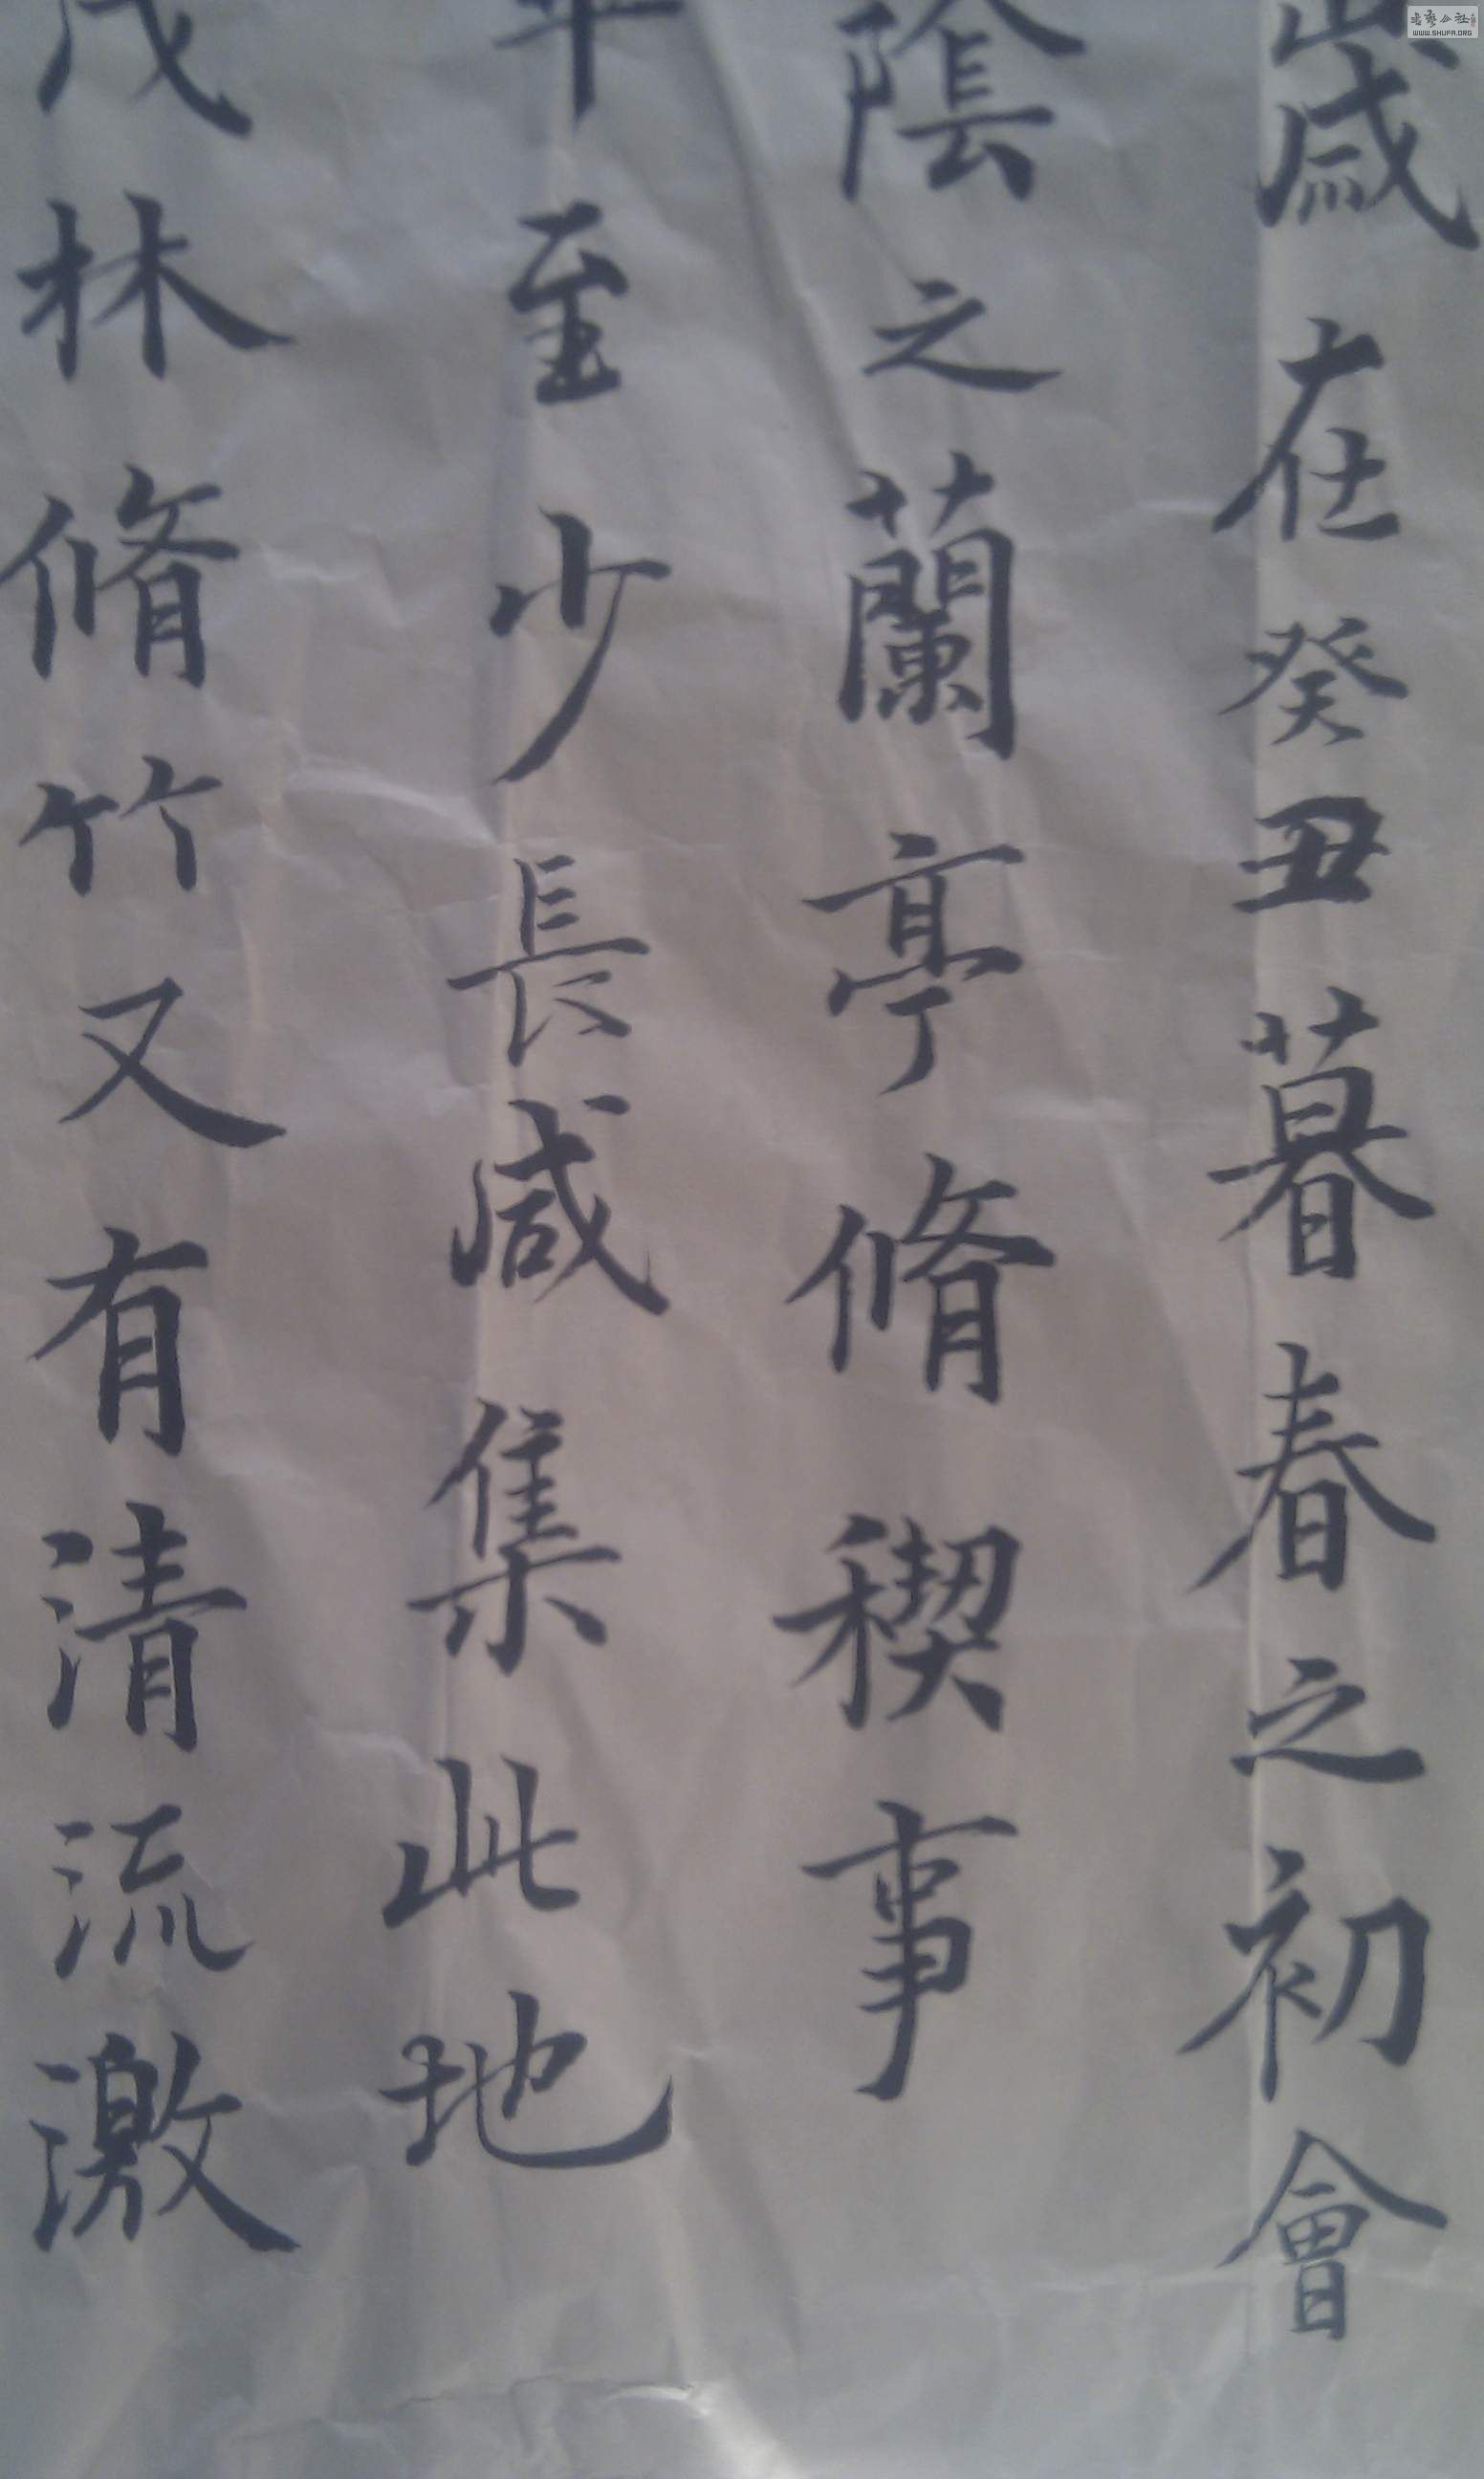 歲在癸丑暮春之初會
陰之蘭亭脩稧事
至少長咸集此地
茂林脩竹又有清流激
書藝公社
WWW.SHUFA.ORG